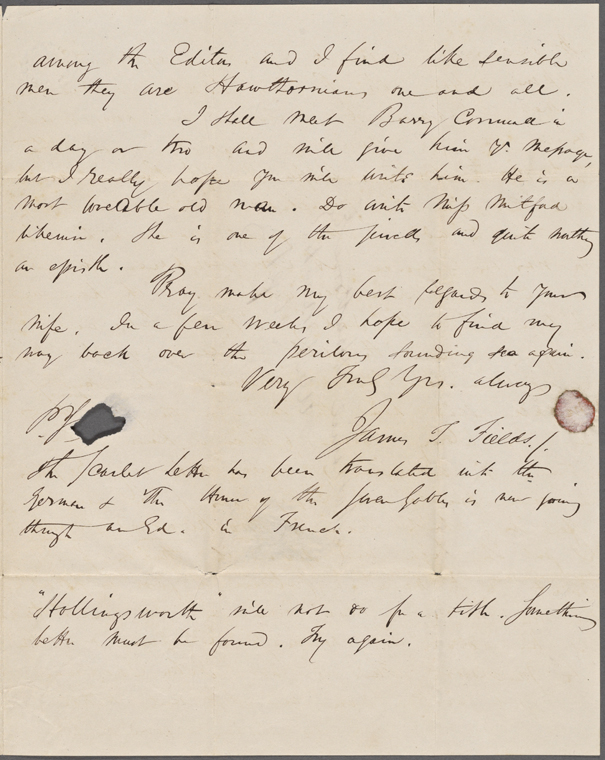 among the Editors and I find like sensible
men they are Hawthornians one and all.
I shall meet Barry Cornwall in
a day or two and will give him yr. message,
but I really hope you will write him. He is a
most loveable old man. Do write Miss Mitford
likewise. She is one of the jewels and quite worthy
an epistle.
Pray make my best regards to your
wife. In a few weeks I hope to find my
way back over the perilous sounding sea again.
Very Truly Yrs. always
James T. Fields.
P.S.
The Scarlet Letter has been translated into the
German & the House of the Seven Gables is now going
through an Ed. in French.
"Hollingsworth" will not do for a title. Something
better must be found. Try again.